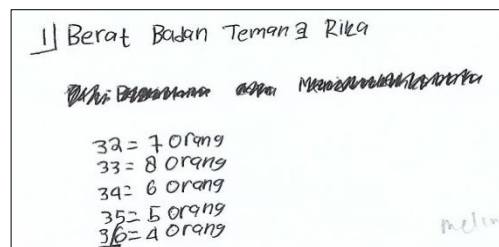 1] Berat Badan Teman2 Rika
32 = 7 Orang
33 = 8 Orang
34 = 6 Orang
35 = 5 Orang
36 = 4 Orang